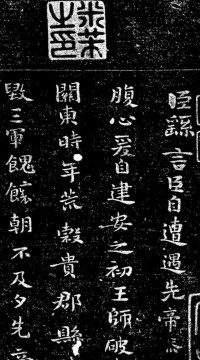 米芾之印
臣繇言臣自遭遇先帝
腹心爰自建安之初王師破
關東時年荒穀貴郡縣
毀三軍餽饟朝不及夕先帝